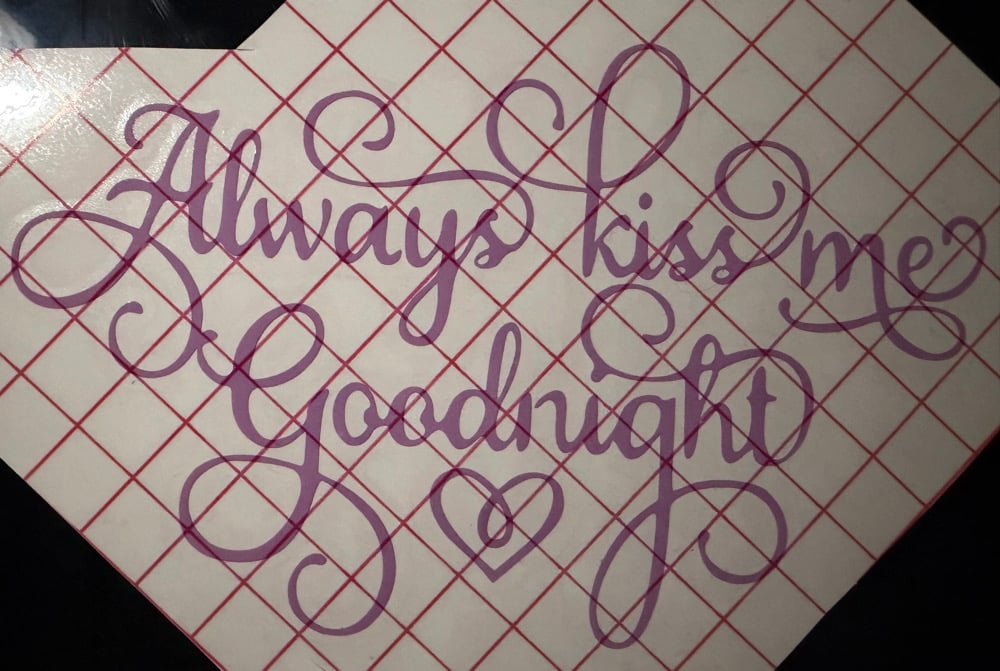 Always kiss me
Goodnight